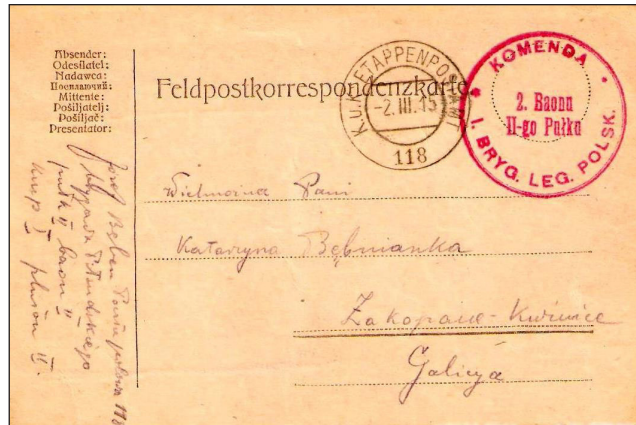 Absender:
Odesílatel:
Nadawca:
Mittente:
Pošiljatelj:
Pošiljač:
Presentator:
Feldpostkorrespondenzkarte.
K.U.K. ETAPPENPOSTAMT
-2.III.15
118
* KOMENDA *
2. Baonu
II-go Pułku
I. BRYG. LEG. POLSK.
Wielmożna Pani
Katarzyna Bębnianka
Zakopane-
Galicya
Józef Poczta polowa 118
Brygada Piłsudskiego
pułk II baon II
komp I pluton II.